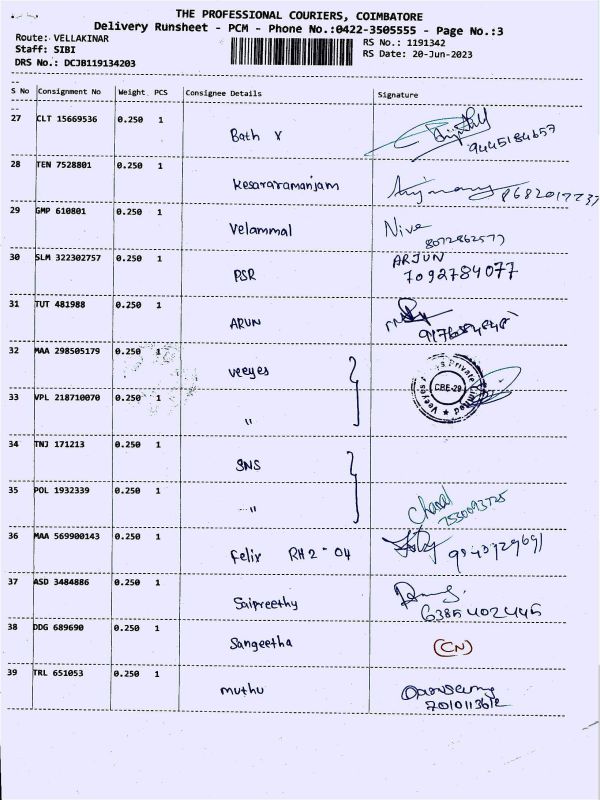 THE PROFESSIONAL COURIERS, COIMBATORE
Delivery Runsheet - PCM - Phone No.:0422-3505555 - Page No.:3
Route: VELLAKINAR
RS No.: 1191342
Staff: SIBI
RS Date: 20-Jun-2023
DRS No.: DCJB119134203
S No Consignment No Weight PCS Consignee Details Signature
27 CLT 15669536 0.250 1
Bath x
9445184657
28 TEN 7528801 0.250 1
Kesararamanjam
29 GMP 610801 0.250 1
Velammal
Nive
30 SLM 322302757 0.250 1
PSR
ARJUN
7092784077
31 TUT 481988 0.250 1
ARUN
32 MAA 298505179 0.250 1
veeyes
CBE-29
33 VPL 218710070 0.250 1
"
34 TNJ 171213 0.250 1
SNS
35 POL 1932339 0.250 1
--"
36 MAA 569900143 0.250 1
felix RH2-04
37 ASD 3484886 0.250 1
Saipreethy
6385402445
38 DDG 689690 0.250 1
Sangeetha
(CN)
39 TRL 651053 0.250 1
muthu